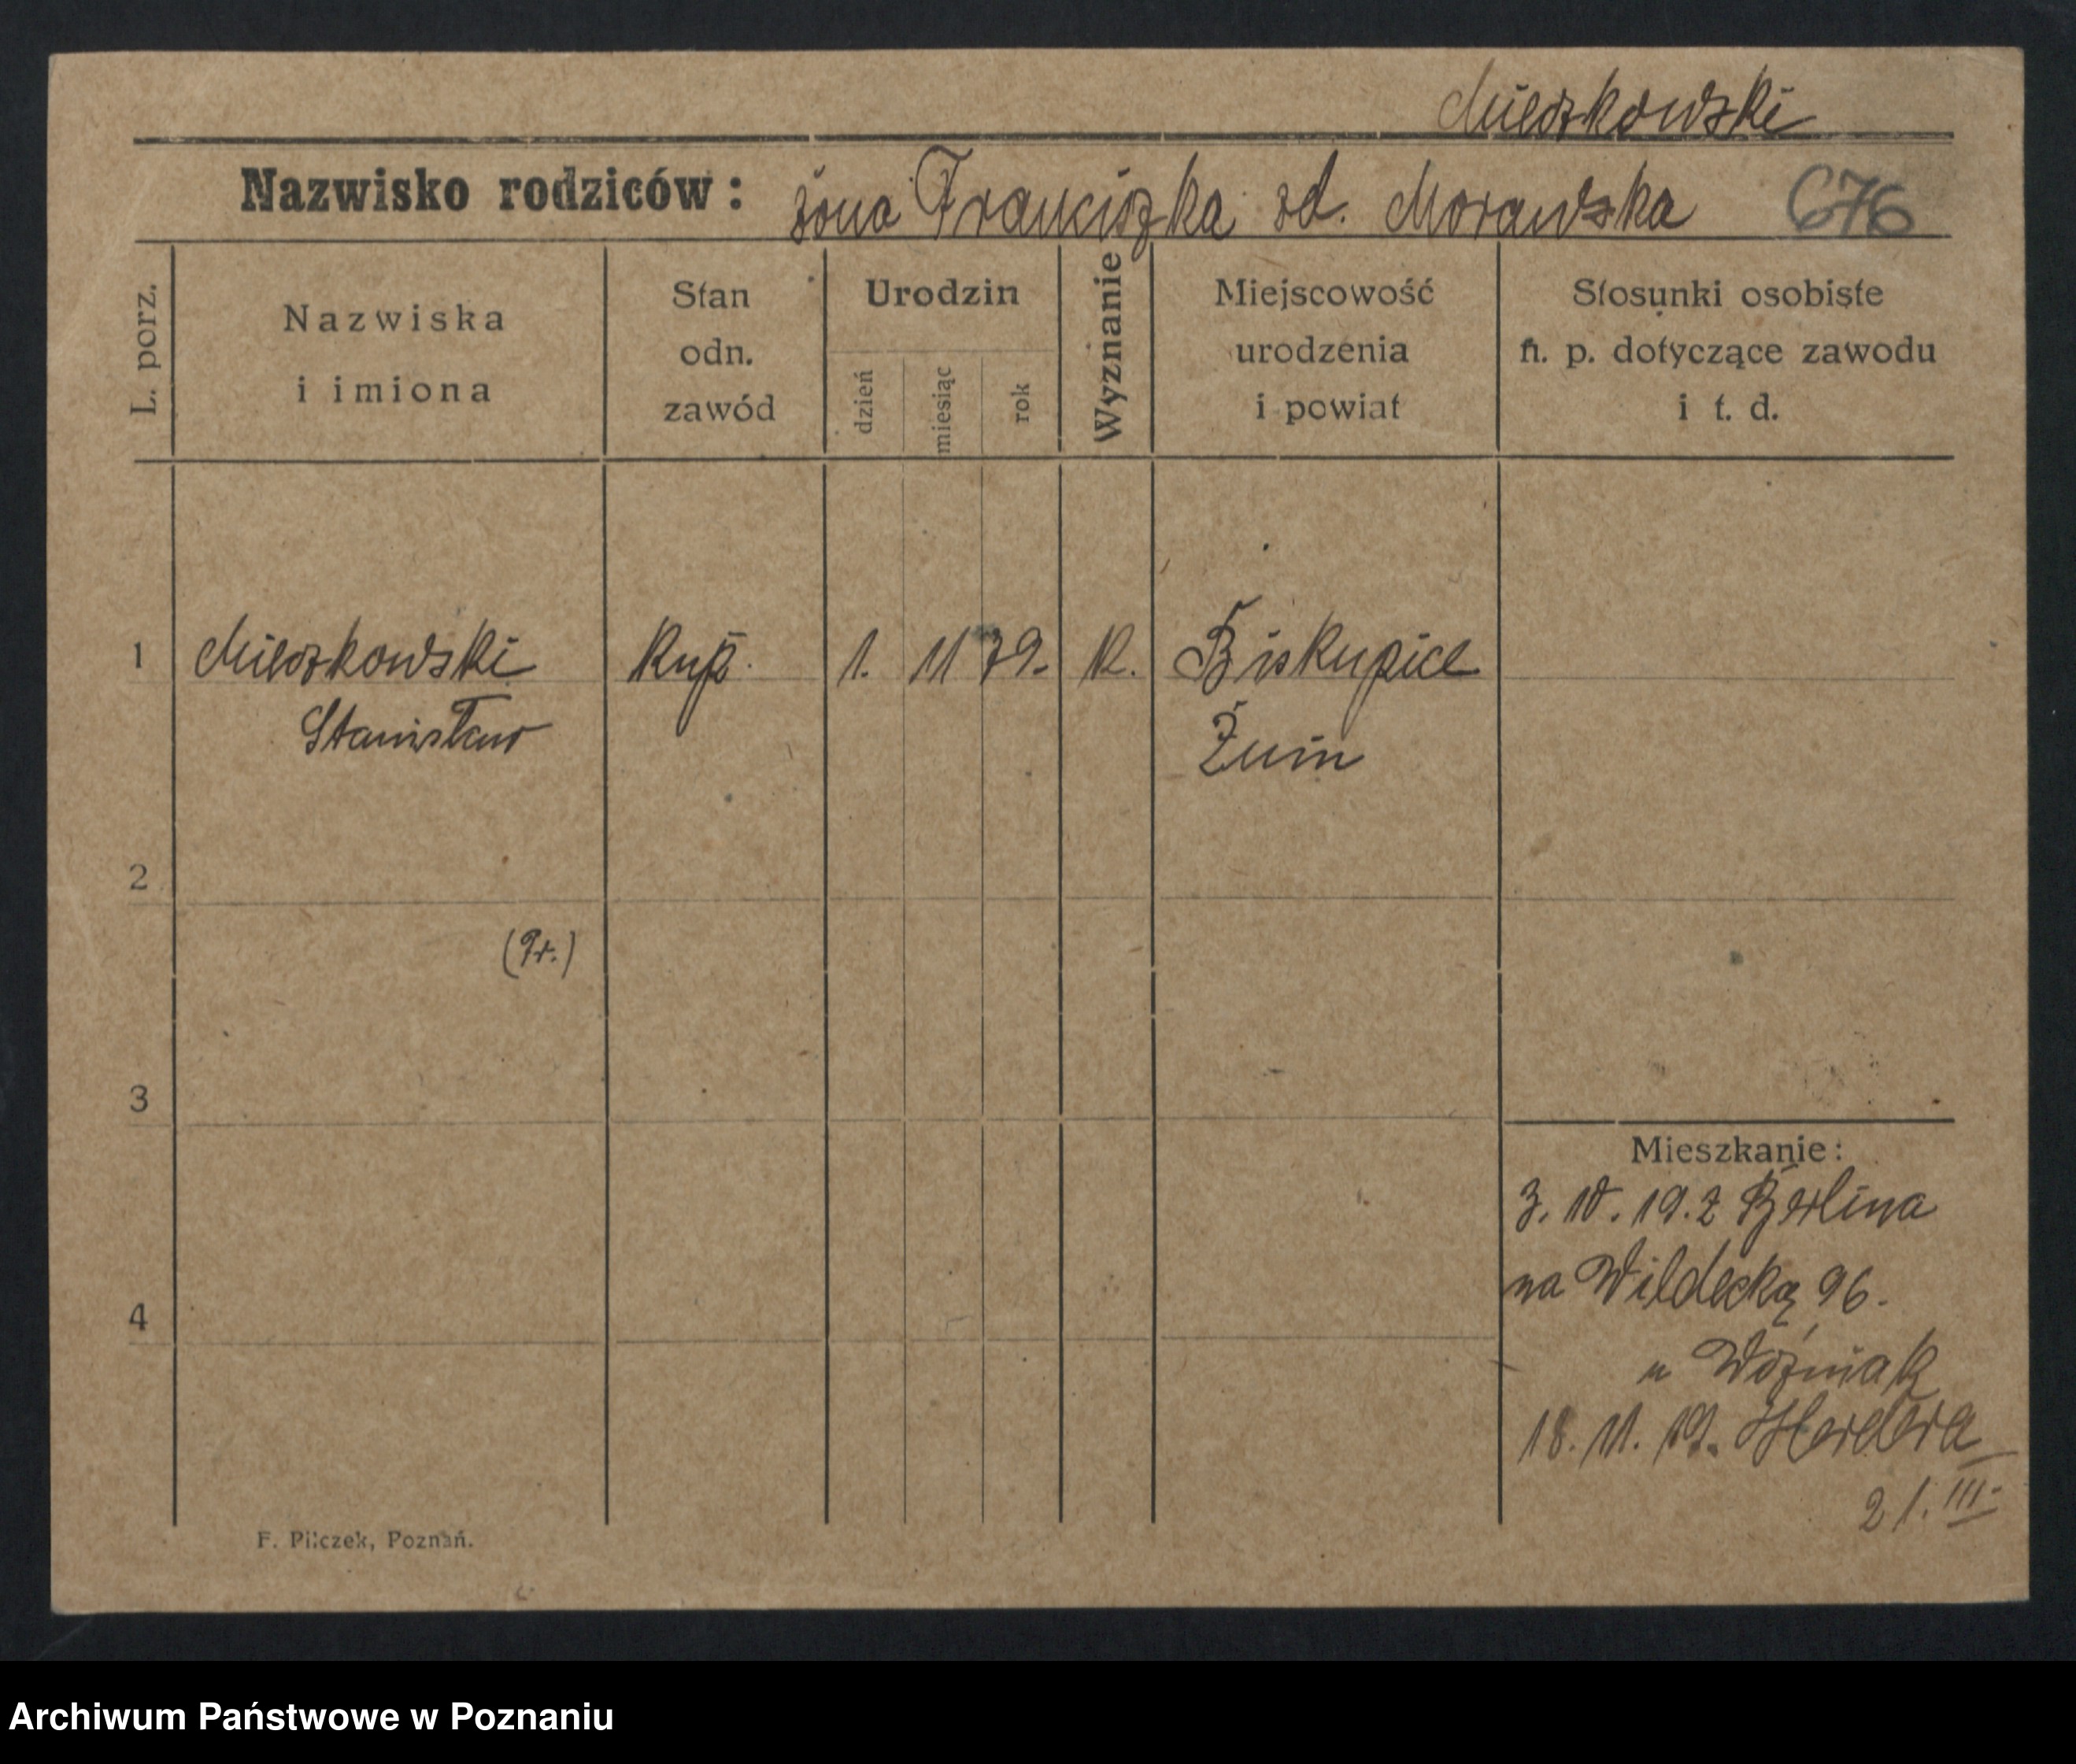 Mieszkowski
Nazwisko rodziców: żona Franciszka zd. Morawska 676
L. porz.
Nazwiska
i imiona
Stan
odn.
zawód
Urodzin
dzień
miesiąc
rok
Wyznanie
Miejscowość
urodzenia
i powiat
Stosunki osobiste
n. p. dotyczące zawodu
i t. d.
1 Mieszkowski Kup. 1. 11 79. K. Biskupice
Stanisław Żnin
2
3
4
Mieszkanie:
3. 10. 19. z Berlina
na Wildecką 96.
u Woźniak
18. 11. 19. Herdera
21. III.
F. Pilczek, Poznań.
Archiwum Państwowe w Poznaniu